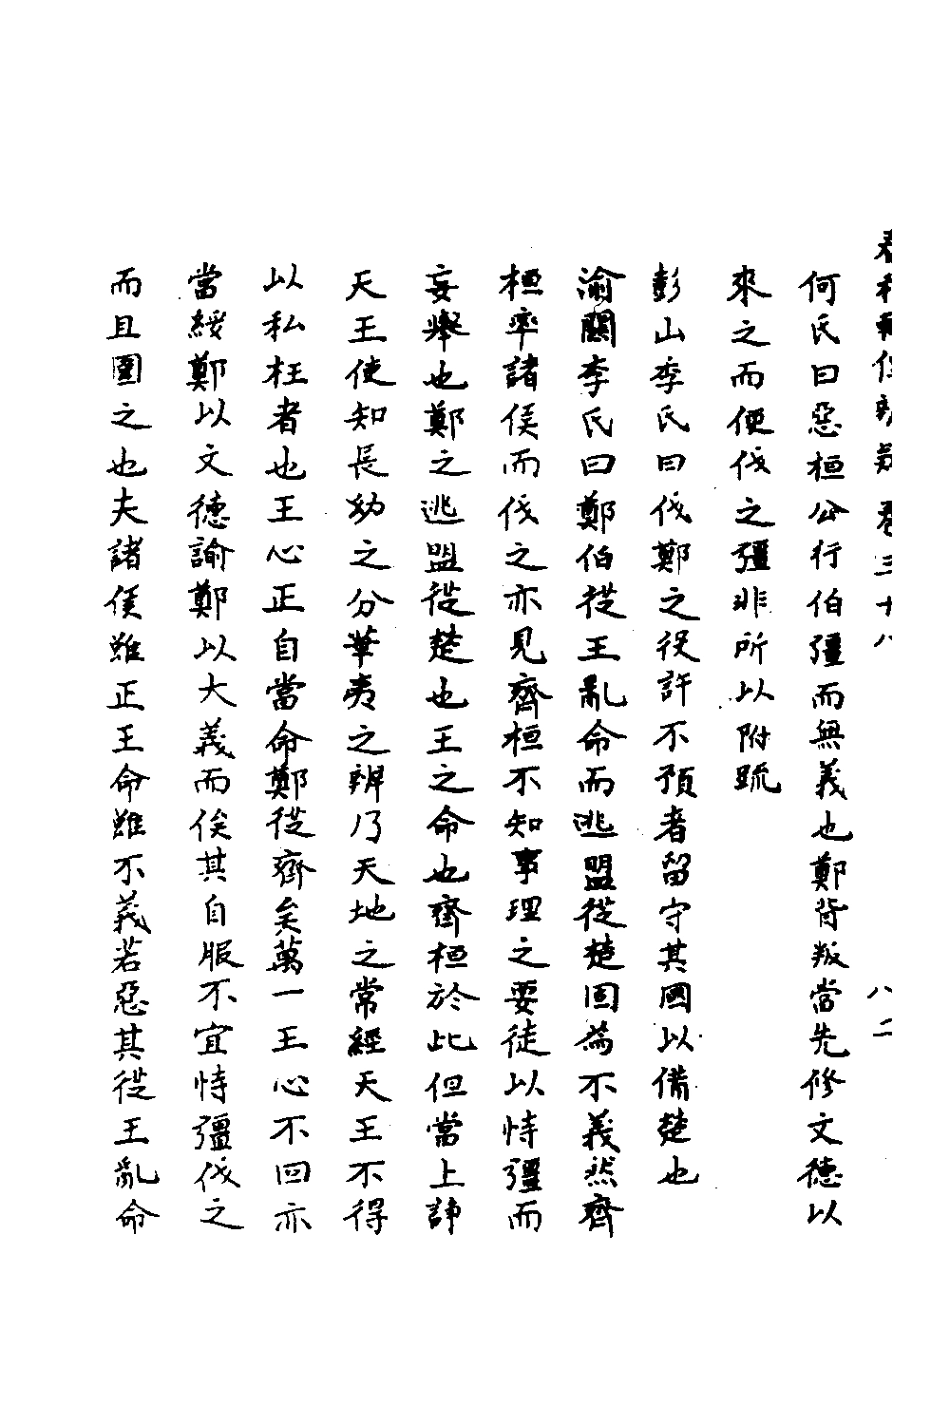 春秋輯傳辨疑 卷三十八 八二
何氏曰惡桓公行伯彊而無義也鄭背叛當先修文德以
來之而便伐之彊非所以附疏
彭山季氏曰伐鄭之役許不預者留守其國以備楚也
渝關李氏曰鄭伯從王亂命而逃盟從楚固為不義然齊
桓率諸侯而伐之亦見齊桓不知事理之要徒以恃彊而
妄舉也鄭之逃盟從楚也王之命也齊桓於此但當上諍
天王使知長幼之分華夷之辨乃天地之常經天王不得
以私枉者也王心正自當命鄭從齊矣萬一王心不回亦
當綏鄭以文德諭鄭以大義而俟其自服不宜恃彊伐之
而且圍之也夫諸侯雖正王命雖不義若惡其從王亂命